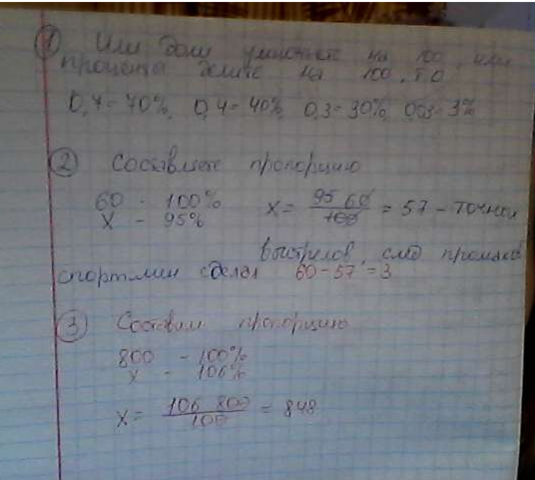 1 Или доли умножаете на 100, или
проценты делите на 100, т.о
0,7=70%, 0,4=40%, 0,3=30%, 0,03=3%
2 Составляете пропорцию
60 - 100%
X - 95%
X = 95 60 / 100 = 57 - точных
выстрелов, след промахов
спортсмен сделал 60-57=3
3 Составим пропорцию
800 - 100%
X - 106%
X = 106 800 / 100 = 848